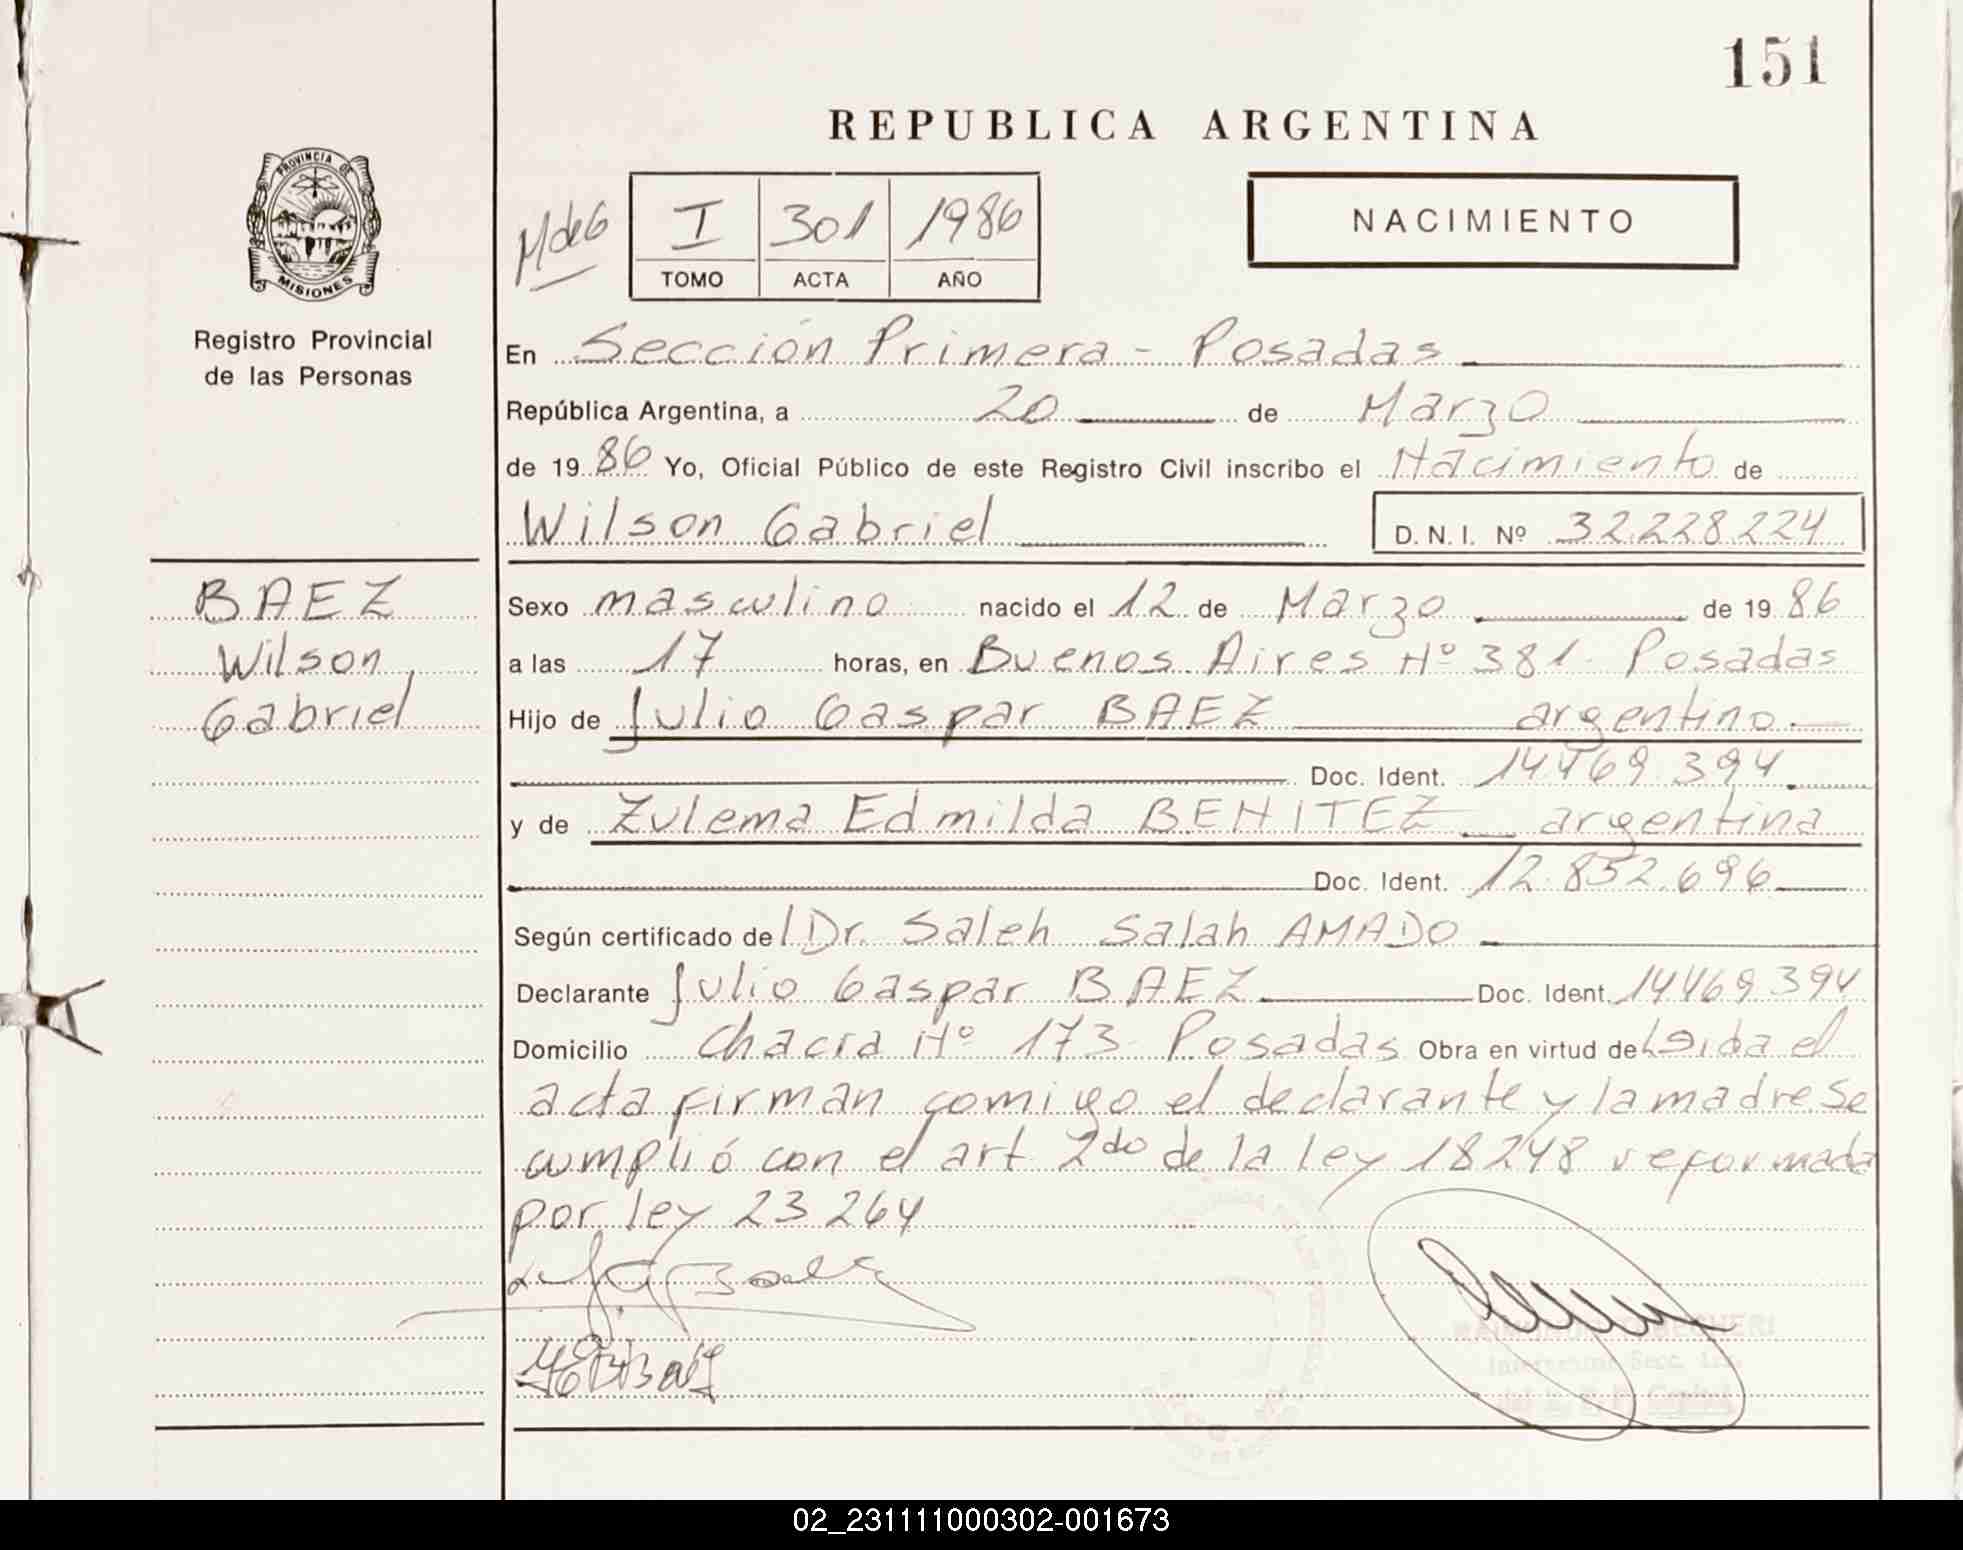 151
REPUBLICA ARGENTINA
PROVINCIA DE
MISIONES
Registro Provincial
de las Personas
M de G
I 301 1986
TOMO ACTA AÑO
NACIMIENTO
En Sección Primera - Posadas
República Argentina, a 20 de Marzo
de 1986 Yo, Oficial Público de este Registro Civil inscribo el Nacimiento de
Wilson Gabriel D.N.I. Nº 32.228.224
BAEZ
Wilson
Gabriel
Sexo masculino nacido el 12 de Marzo de 1986
a las 17 horas, en Buenos Aires Nº 381 - Posadas
Hijo de Julio Gaspar BAEZ argentino.
Doc. Ident. 14469.394
y de Zulema Edmilda BENITEZ argentina
Doc. Ident. 12.852.696
Según certificado del Dr. Saleh Salah AMADO
Declarante Julio Gaspar BAEZ Doc. Ident. 14469394
Domicilio Chacra Nº 173 - Posadas Obra en virtud de Leida el
acta firman comigo el declarante y la madre. Se
cumplió con el art 2do de la ley 18248 reformada
por ley 23264
02_231111000302-001673